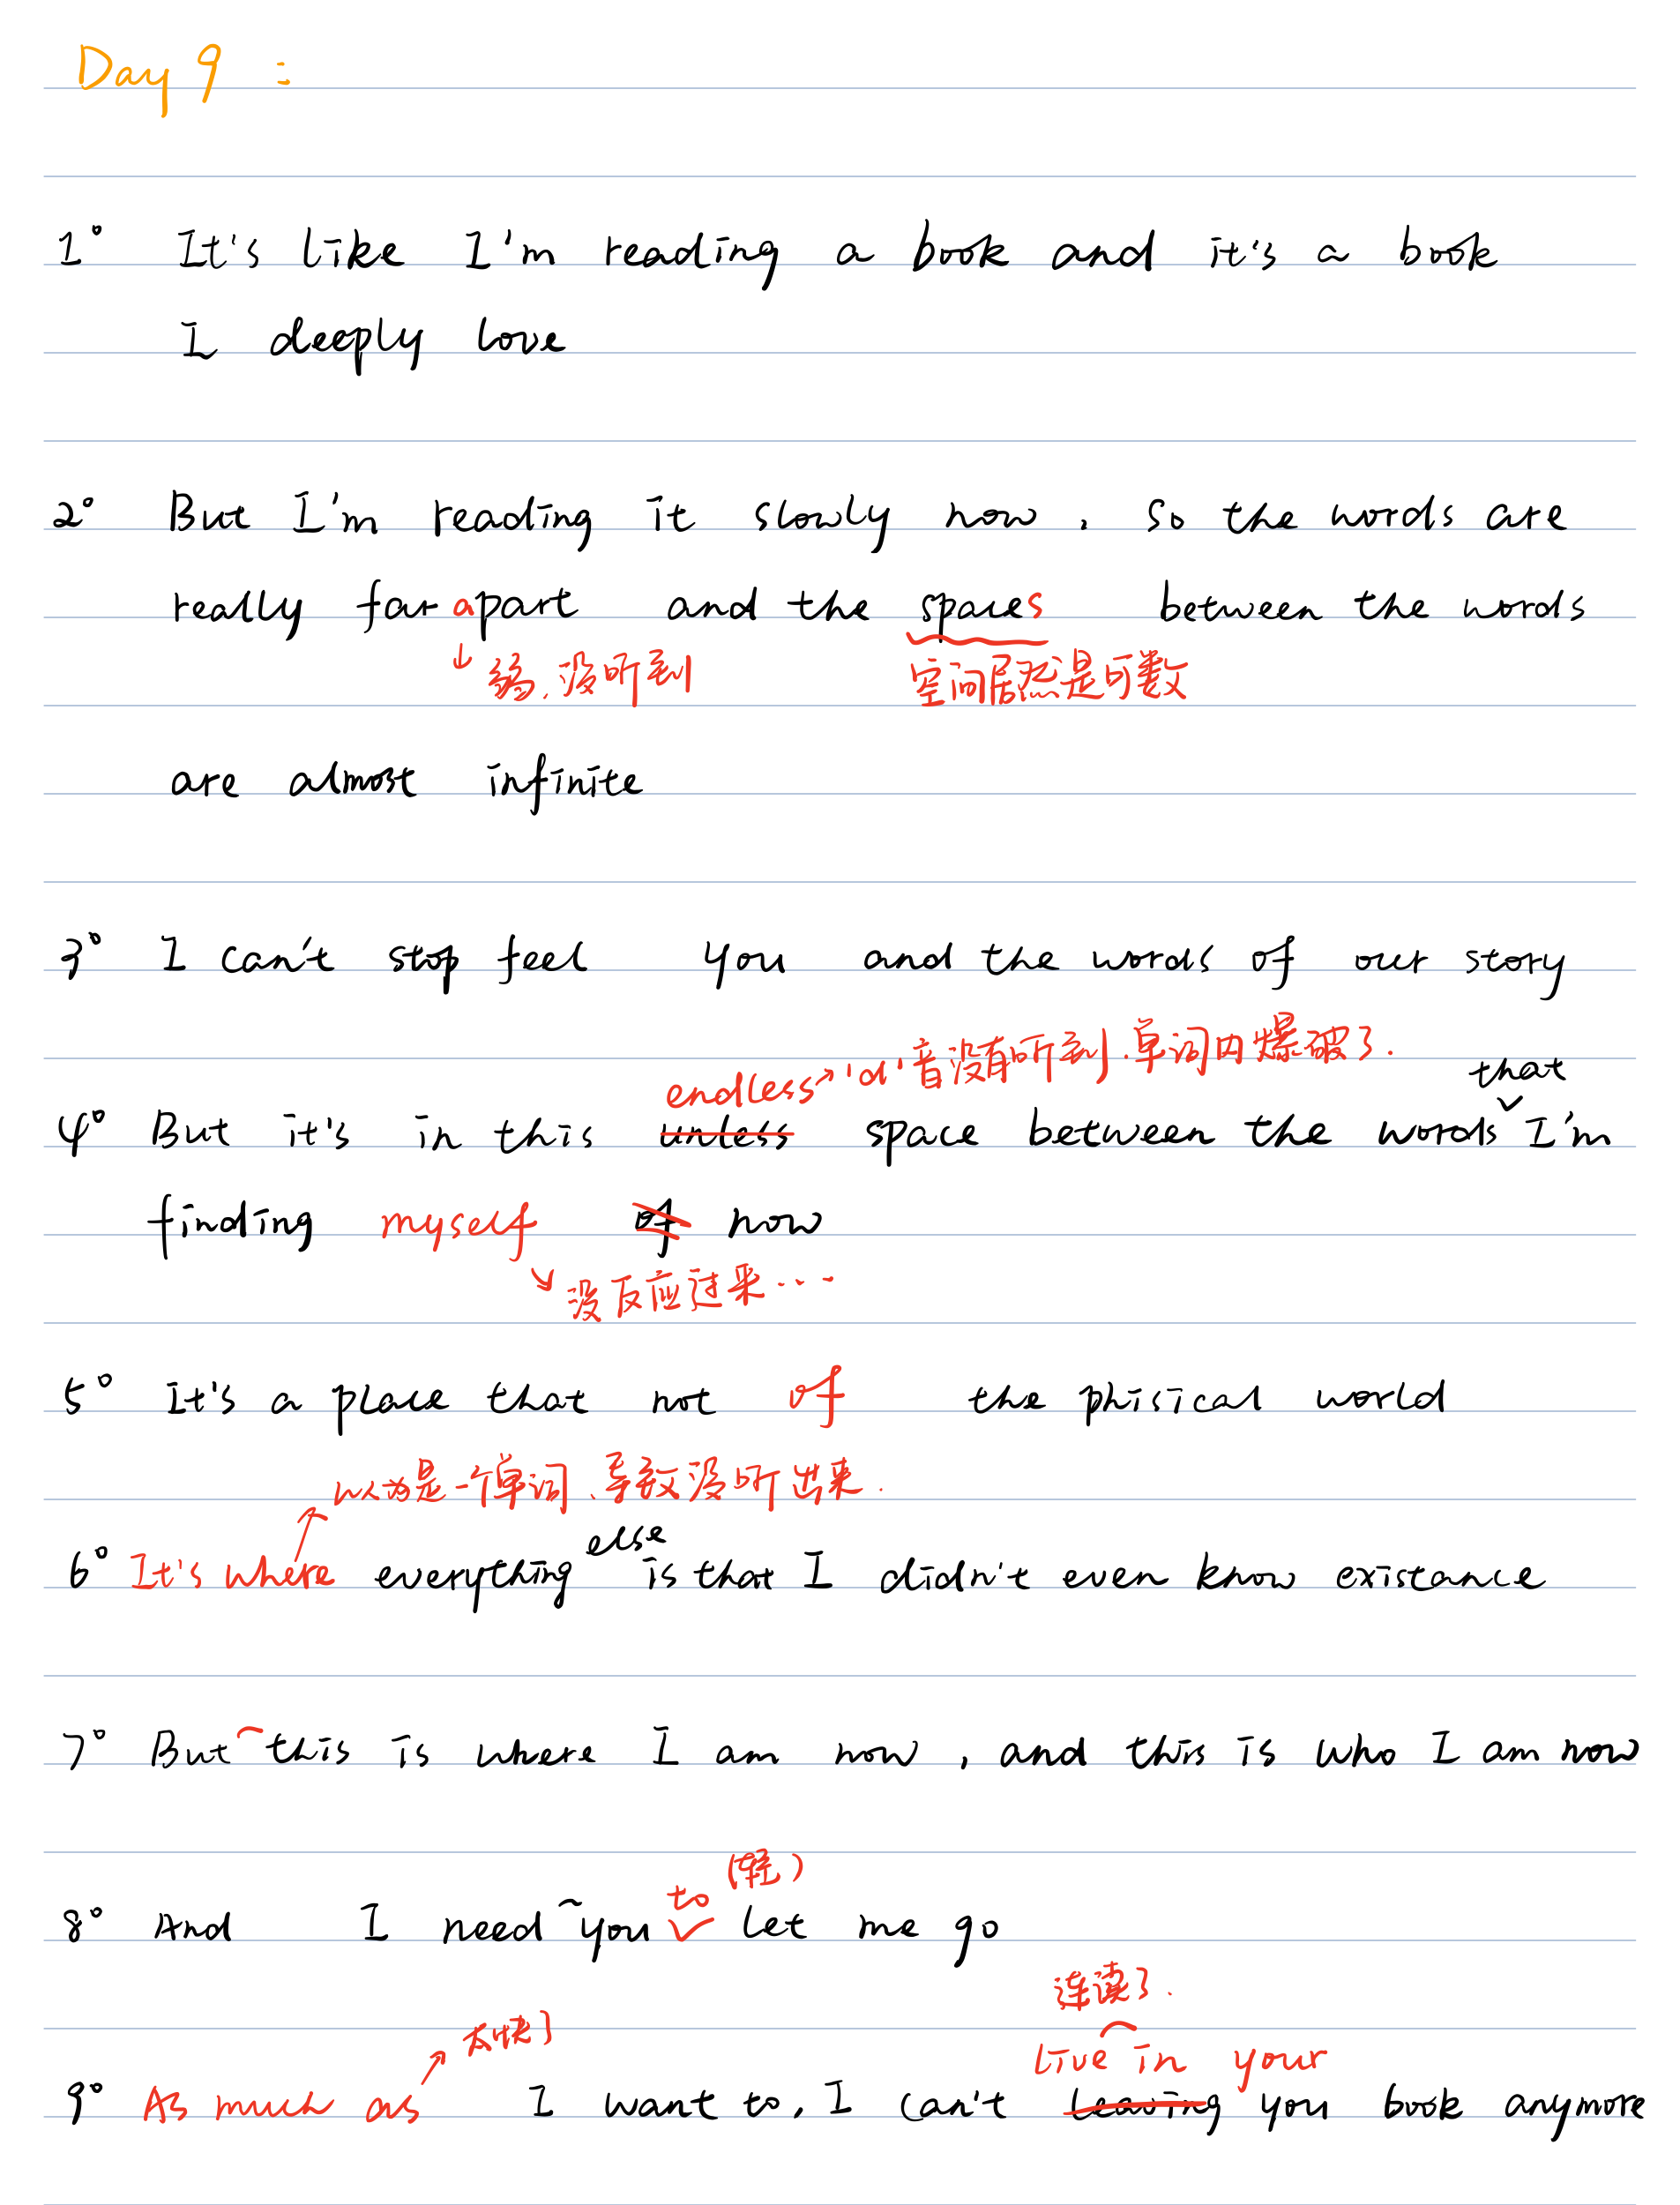 Day 9 :
1° It's like I'm reading a book and it's a book
I deeply love
2° But I'm reading it slowly now, so the words are
really far apart and the spaces between the words
↓ 弱、没听到 空间居然是可数
are almost infinite
3° I can't stop feel you and the words of our story
endless → 'd' 音没有听到.单词内爆破了.
that
4° But it's in this unless space between the words I'm
finding myself of now
没反应过来...
5° It's a place that not of the phisical world
以为是一个单词、导致没听出来.
else
6° It's where everything is that I didn't even know existance
7° But this is where I am now, and this is who I am now
(轻)
to
8° And I need you let me go
连读了.
太快了
live in your
9° As much as I want to, I can't leaving you book anymore